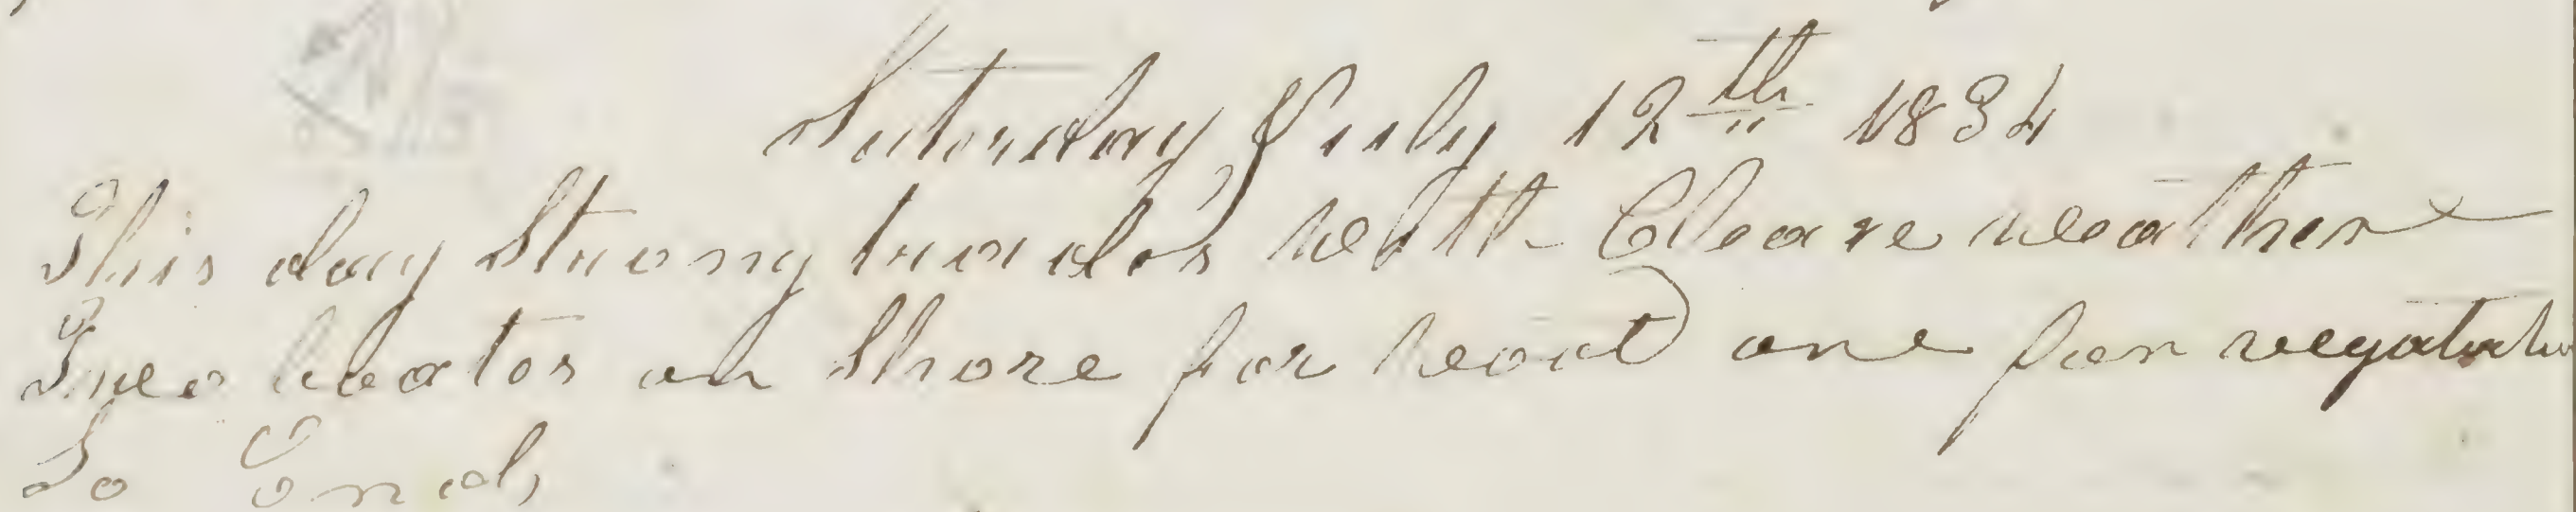 Saterday July 12th 1834
This day Strong trades With Cleare weather
Two boats on Shore for wood one for vegatabl
So Ends